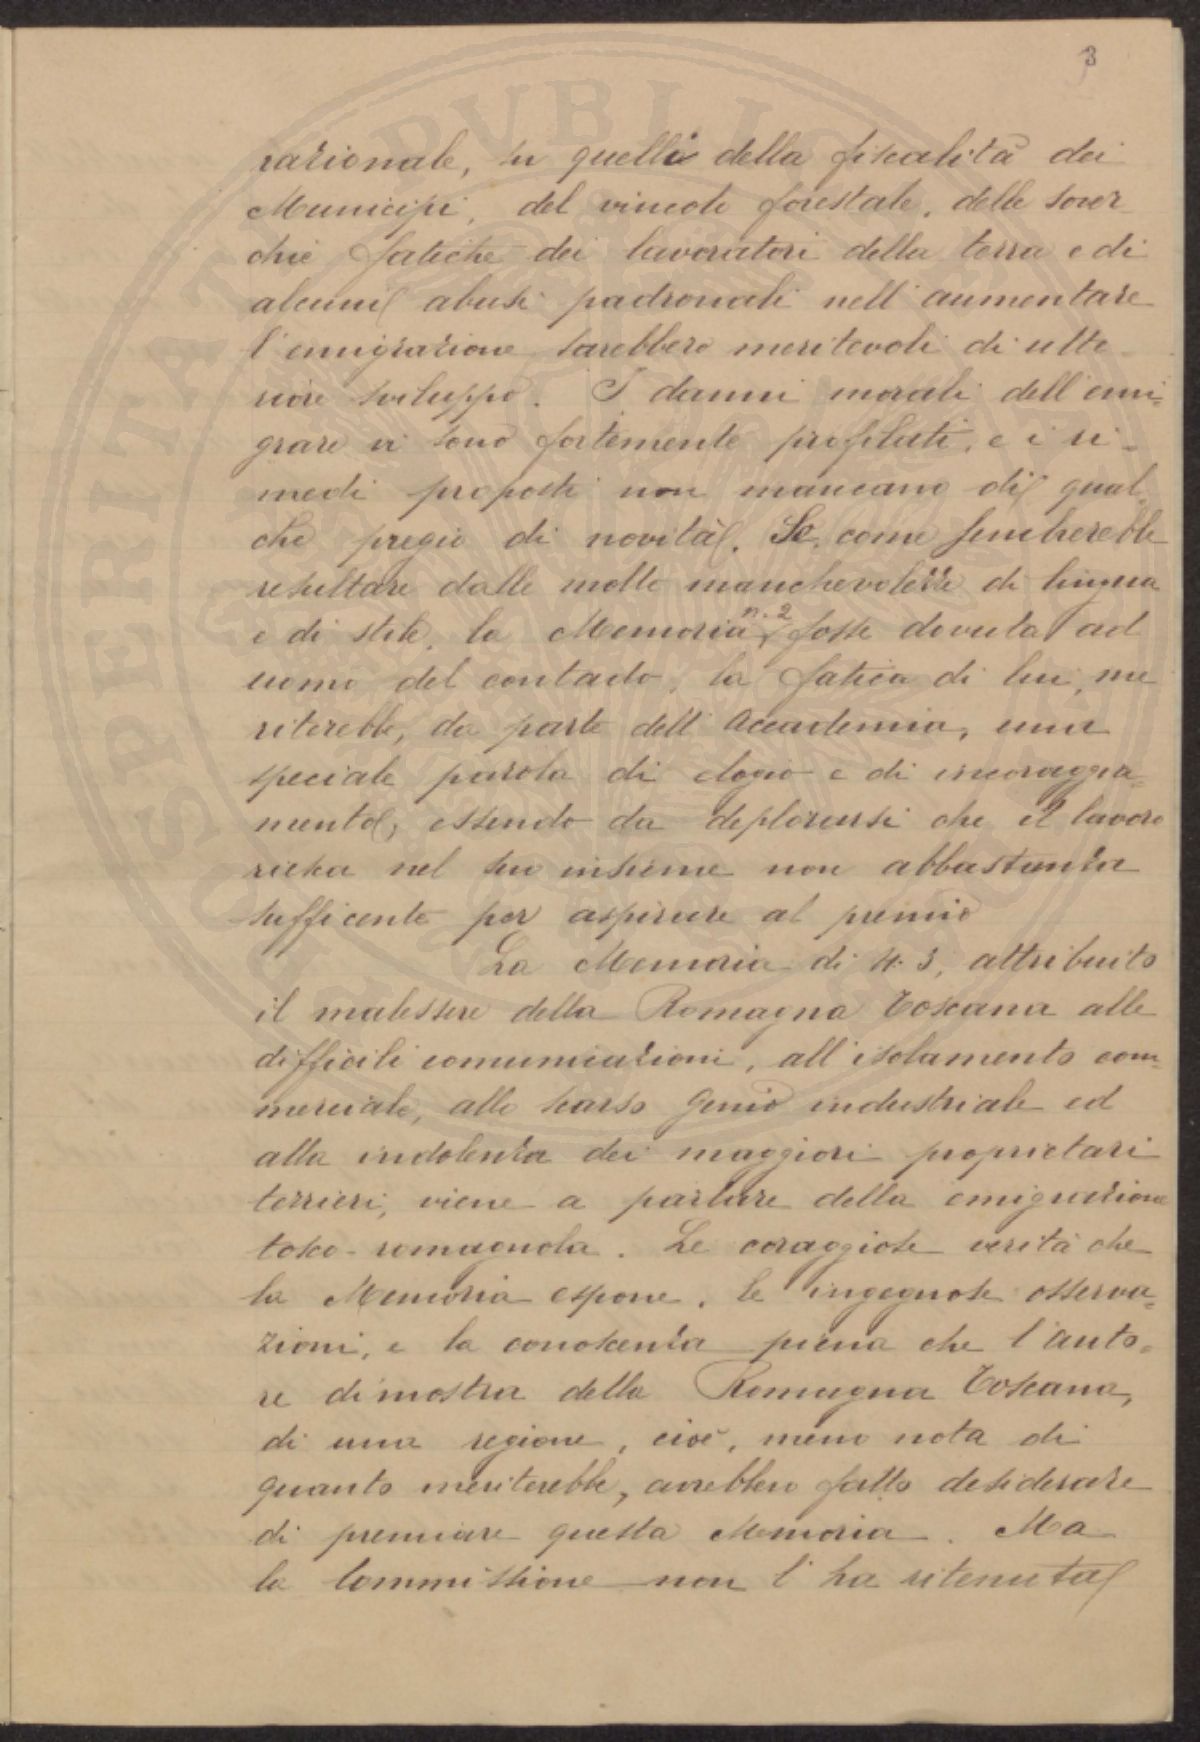 3
razionale, su quelli della fiscalità dei
Municipi, del vincolo forestale, delle sover
chie fatiche dei lavoratori della terra e di
alcuni abusi padronali nell'aumentare
l'emigrazione sarebbero meritevoli di ulte
riore sviluppo. I danni morali dell'emi-
grare vi sono fortemente profilati, e i ri-
medi proposti non mancano di qual-
che pregio di novità. Se, come sembrerebbe
resultare dalle molte manchevolezze di lingua
e di stile, la Memoria n. 2 fosse dovuta ad
uomo del contado, la fatica di lui, me
riterebbe, da parte dell'Accademia, una
speciale parola di elogio e di incoraggia-
mento, essendo da deplorarsi che il lavoro
riesca nel suo insieme non abbastanza
sufficente per aspirare al premio
La Memoria di N. 3, attribuito
il malessere della Romagna Toscana alle
difficili comunicazioni, all'isolamento com-
merciale, allo scarso genio industriale ed
alla indolenza dei maggiori proprietari
terrieri, viene a parlare della emigrazione
tosco-romagnola. Le coraggiose verità che
la Memoria espone, le ingegnose osserva-
zioni, e la conoscenza piena che l'auto-
re dimostra della Romagna Toscana,
di una regione, cioè, meno nota di
quanto meriterebbe, avrebbero fatto desiderare
di premiare questa Memoria. Ma
la Commissione non l'ha ritenuta